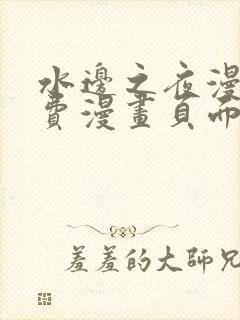 水邊之夜漫
費漫畫頁面
羞羞的大師兄